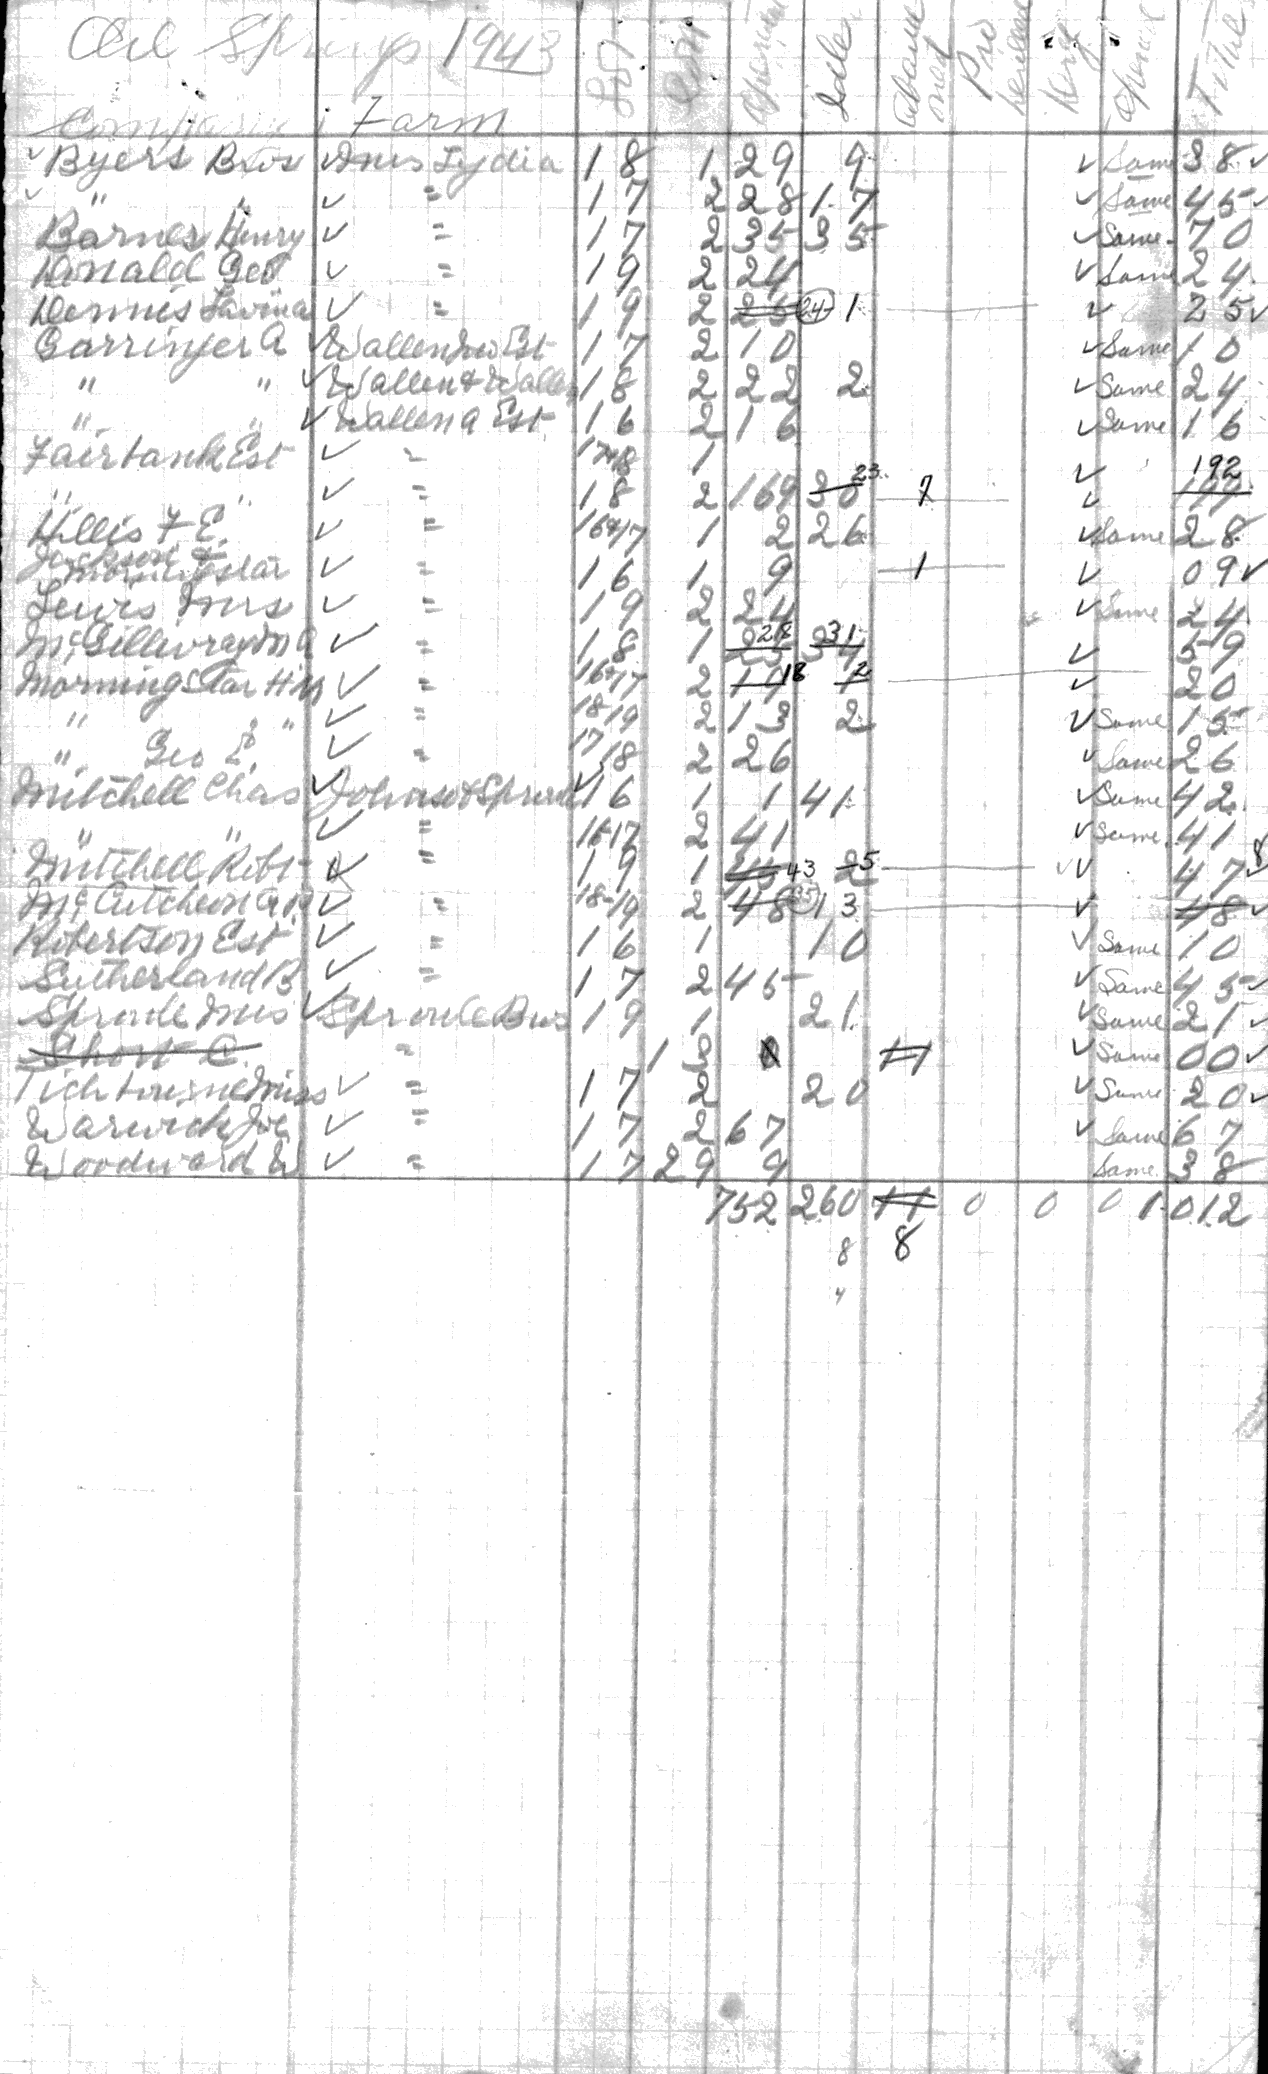 Oil Springs 1943 Lot Con Operating Idle Aband oned Pro Drilling Total
Company Farm
✓ Byers Bros Lydia 18 1 29 9 ✓ Same 38 ✓
✓ " " ✓ = 17 2 28 17 ✓ Same 45 ✓
Barnes Henry ✓ = 17 2 35 35 ✓ Same 70
Donald Geo ✓ = 19 2 24 ✓ Same 24
Dennis Lavina ✓ = 19 2 25 24 1 ✓ 25 ✓
Garringer A ✓ Wallen Geo Est 17 2 10 ✓ Same 10
" " ✓ Wallen & Wallen 18 2 22 2 ✓ Same 24
" " ✓ Wallen A Est 16 2 16 ✓ Same 16
Fairbank Est ✓ = 17-18 1 ✓
" " ✓ = 18 2 169 30 23 7 ✓ 192
Hillis F E. ✓ = 16-17 1 2 26 ✓ Same 28
Jackson & Morningstar ✓ = 16 1 9 1 ✓ 09 ✓
Lewis Mrs ✓ = 19 2 24 ✓ Same 24
McGillivray M A ✓ = 18 1 28 31 ✓ 59
Morningstar H M ✓ = 16-17 2 18 2 ✓ 20
" " ✓ = 18-19 2 13 2 ✓ Same 15
" Geo E. ✓ = 17 18 2 26 ✓ Same 26
Mitchell Chas ✓ Johnson & Sproule ✓ 16 1 1 41 ✓ Same 42
" " ✓ = 16-17 2 41 ✓ Same 41
Mitchell Robt ✓ = 19 1 43 2 5 ✓✓ 47 8 ✓
McCutcheon ✓ = 18-19 2 48 35 13 ✓ 48 ✓
Robertson Est ✓ = 16 1 10 ✓ Same 10
Sutherland B ✓ = 17 2 45 ✓ Same 45 ✓
Sproule Mrs ✓ Sproule Bros 19 1 21 ✓ Same 21 ✓
Short C. = 1 0 11 ✓ Same 00 ✓
Tichbourne Miss ✓ = 17 2 20 ✓ Same 20 ✓
Warwick Joe ✓ = 17 2 67 ✓ Same 67
Woodward W ✓ = 17 2 9 9 Same 38
752 260 11 0 0 0 1012
8 8
4